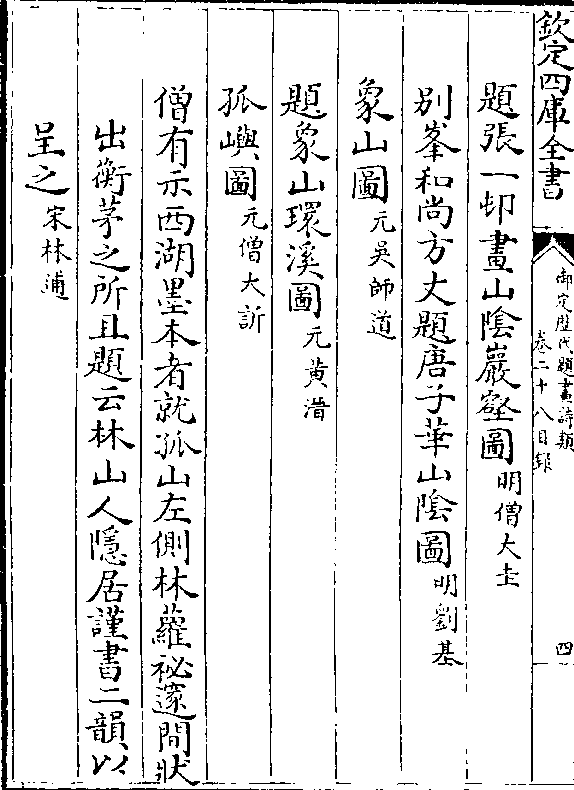 欽定四庫全書
御定歴代題畫詩類
卷二十八目録
四
題張一邨畫山陰巖壑圖 明僧大圭
別峯和尚方丈題唐子華山陰圖 明劉基
象山圖 元吳師道
題象山環溪圖 元黃溍
孤嶼圖 元僧大訢
僧有示西湖墨本者就孤山左側林蘿祕邃間狀
出衡茅之所且題云林山人隱居謹書二韻以
呈之 宋林逋